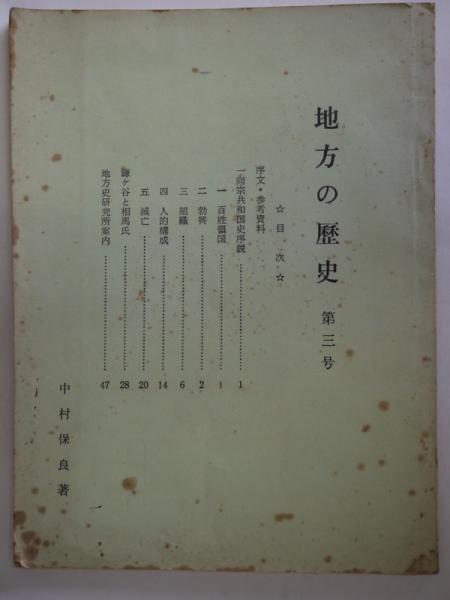 地方の歴史 第三号
☆ 目次 ☆
序文・参考資料
一向宗共和国史序説 …… 1
一 百姓領国 …… 1
二 勃興 …… 2
三 組織 …… 6
四 人的構成 …… 14
五 滅亡 …… 20
鎌ケ谷と相馬氏 …… 28
地方史研究所案内 …… 47
中村保良著